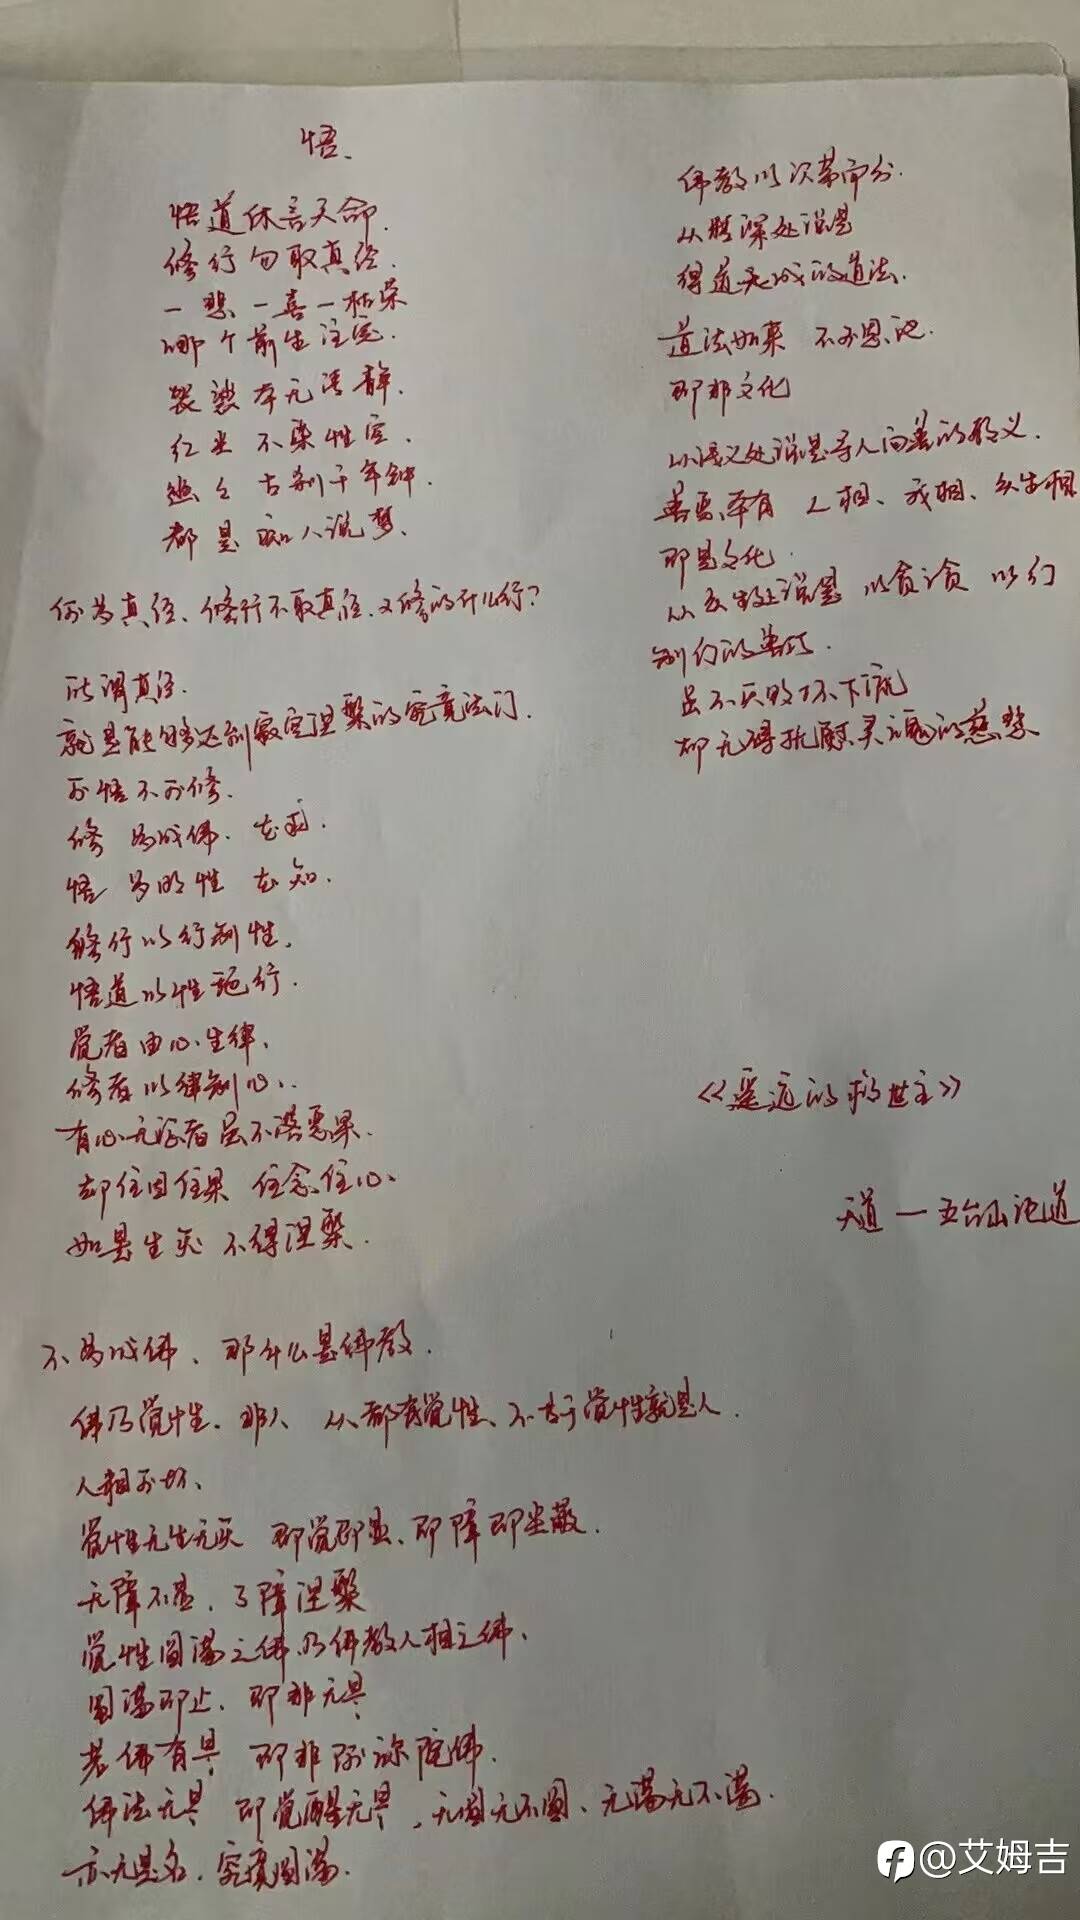 悟、
悟道休言天命.
修行勿取真经.
一悲一喜一枯荣
哪个前生注定.
袈裟本无清静.
红尘不染性空.
幽幽古刹千年钟.
都是痴人说梦.
何为真经、修行不取真经.又修的什么行?
所谓真经.
就是能够达到寂空涅槃的究竟法门.
可悟不可修.
修 为成佛. 在求.
悟 为明性 在知.
修行以行制性.
悟道以性施行.
觉者由心生律.
修者以律制心.
有心无证者虽不落恶果.
却住因住果 住念住心、
如是生灭 不得涅槃.
不为成佛、那什么是佛教.
佛乃觉性. 非人 人都有觉性、不等于觉性就是人.
人相可坏、
觉性无生无灭 即觉即显、即障即尘蔽.
无障不显. 了障涅槃
觉性圆满之佛.乃佛教人相之佛、
圆满即止. 即非无量
若佛有量 即非阿弥陀佛.
佛法无量 即觉醒无量, 无圆无不圆、无满无不满.
亦无是名. 究竟圆满.
佛教以次第而分.
从精深处说是
得道天成的道法.
道法如来 不可思议.
即非文化
从浅义处说是导人向善的教义.
善恶本有 人相、我相、众生相
即是文化.
从众生处说是 以贪制贪 以幻
制幻的善巧.
虽不灭败坏下流
却无碍抚慰灵魂的慈悲
《遥远的救世主》
天道 — 五台山论道
@艾姆吉